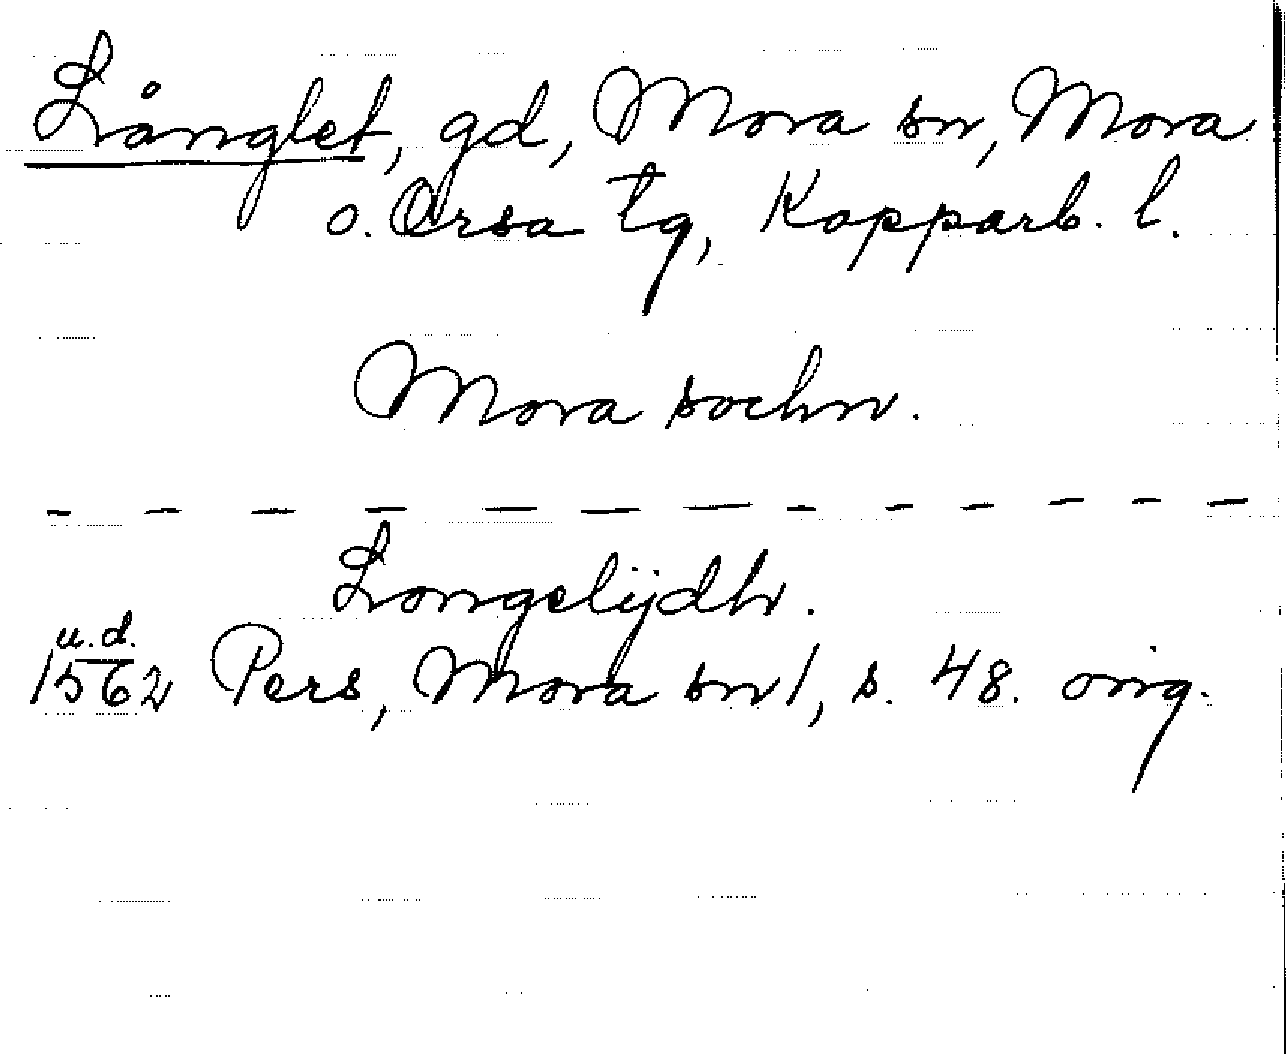 Långlet, gd, Mora sn, Mora
o. Orsa tg, Kopparb. l.
Mora sochn.
— — — — — — — — — — — — —
Longelijdh.
u.d.
1562 Pers, Mora sn/, s. 48. orig.